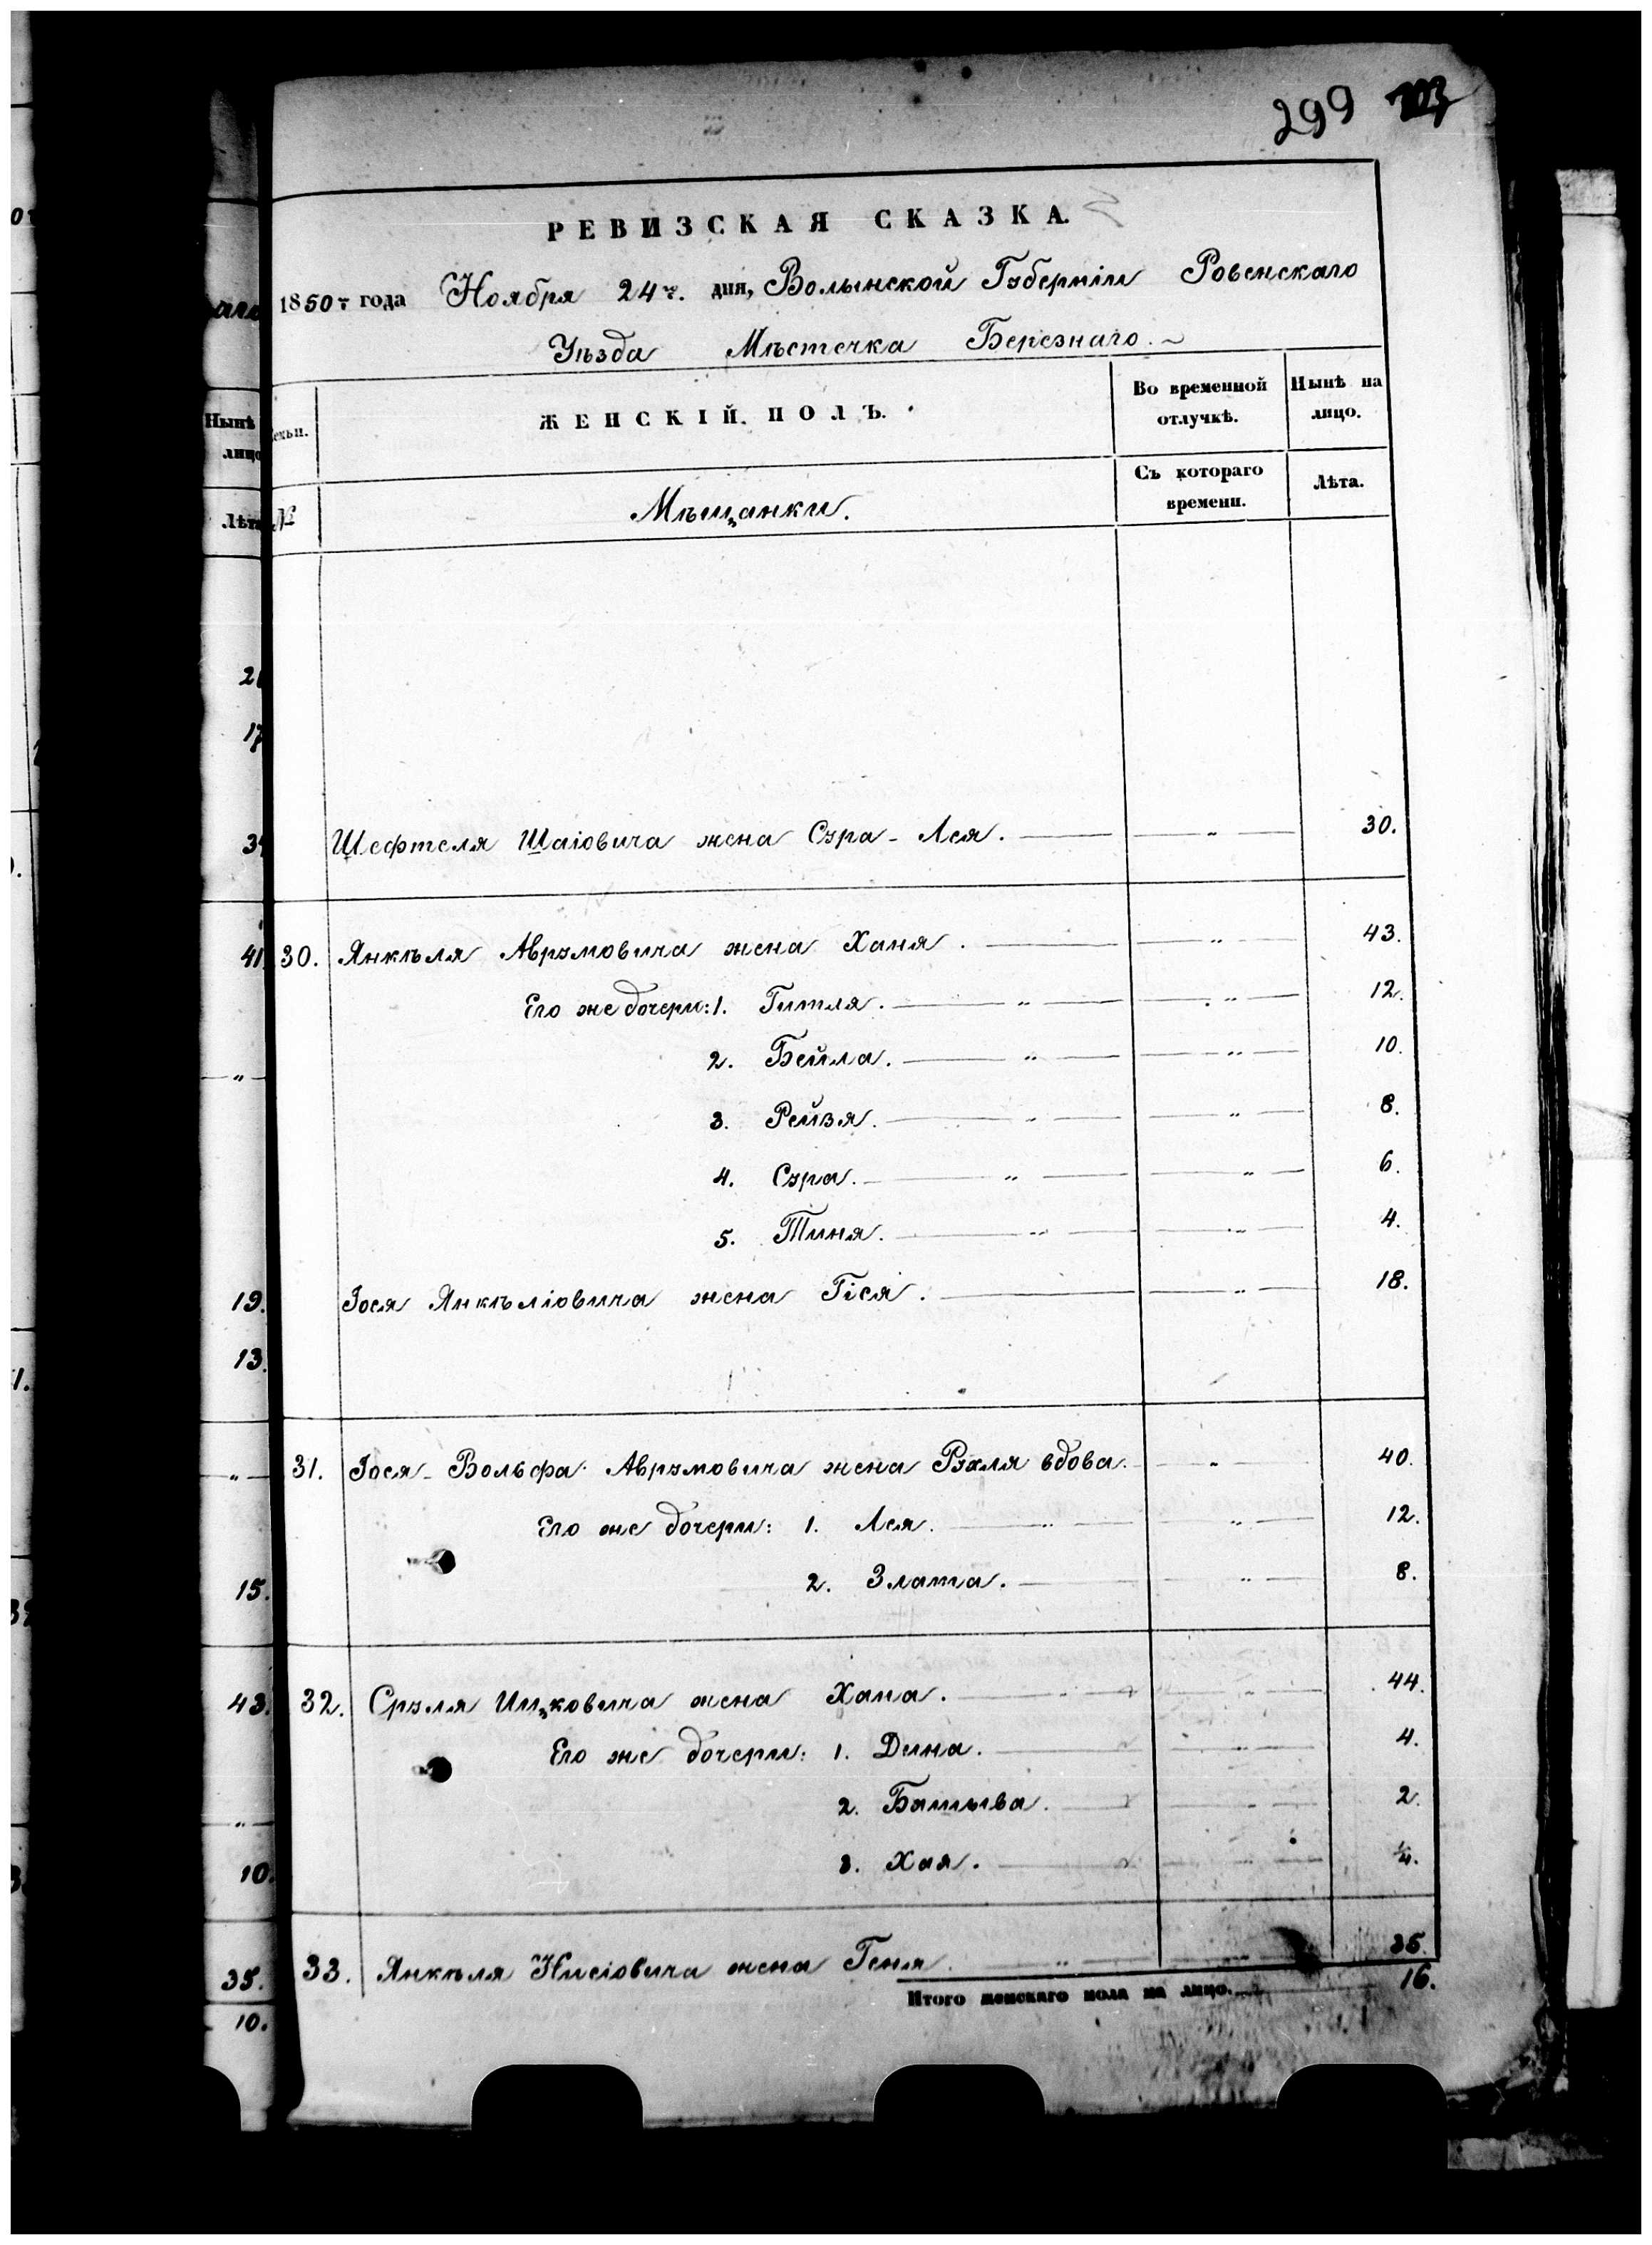 299
РЕВИЗСКАЯ СКАЗКА.
1850 г года Ноября 24 г. дня, Волынской Губерніи Ровенскаго
Уѣзда Мѣстечка Березнаго.
ЖЕНСКІЙ ПОЛЪ.
Во временной отлучкѣ.
Нынѣ на лицо.
№
Мѣщанки.
Съ котораго времени.
Лѣта.
Шефтеля Шаіовича жена Сура-Лея. 30.
30. Янкѣля Аврумовича жена Ханя. 43.
Его же дочери: 1. Гитля. 12.
2. Бейла. 10.
3. Рейзя. 8.
4. Сура. 6.
5. Тиня. 4.
Іося Янкѣліовича жена Гіся. 18.
31. Іося-Вольфа Аврумовича жена Рухля вдова. 40.
Его же дочери: 1. Лея. 12.
2. Злата. 8.
32. Сруля Ицковича жена Хана. 44.
Его же дочери: 1. Дина. 4.
2. Батшва. 2.
3. Хая. 1/4.
33. Янкѣля Нисіовича жена Геня. 35.
Итого женскаго пола на лицо. 16.
Нынѣ
лицо
Лѣта
17
41
19.
13.
15.
43.
10.
35.
10.